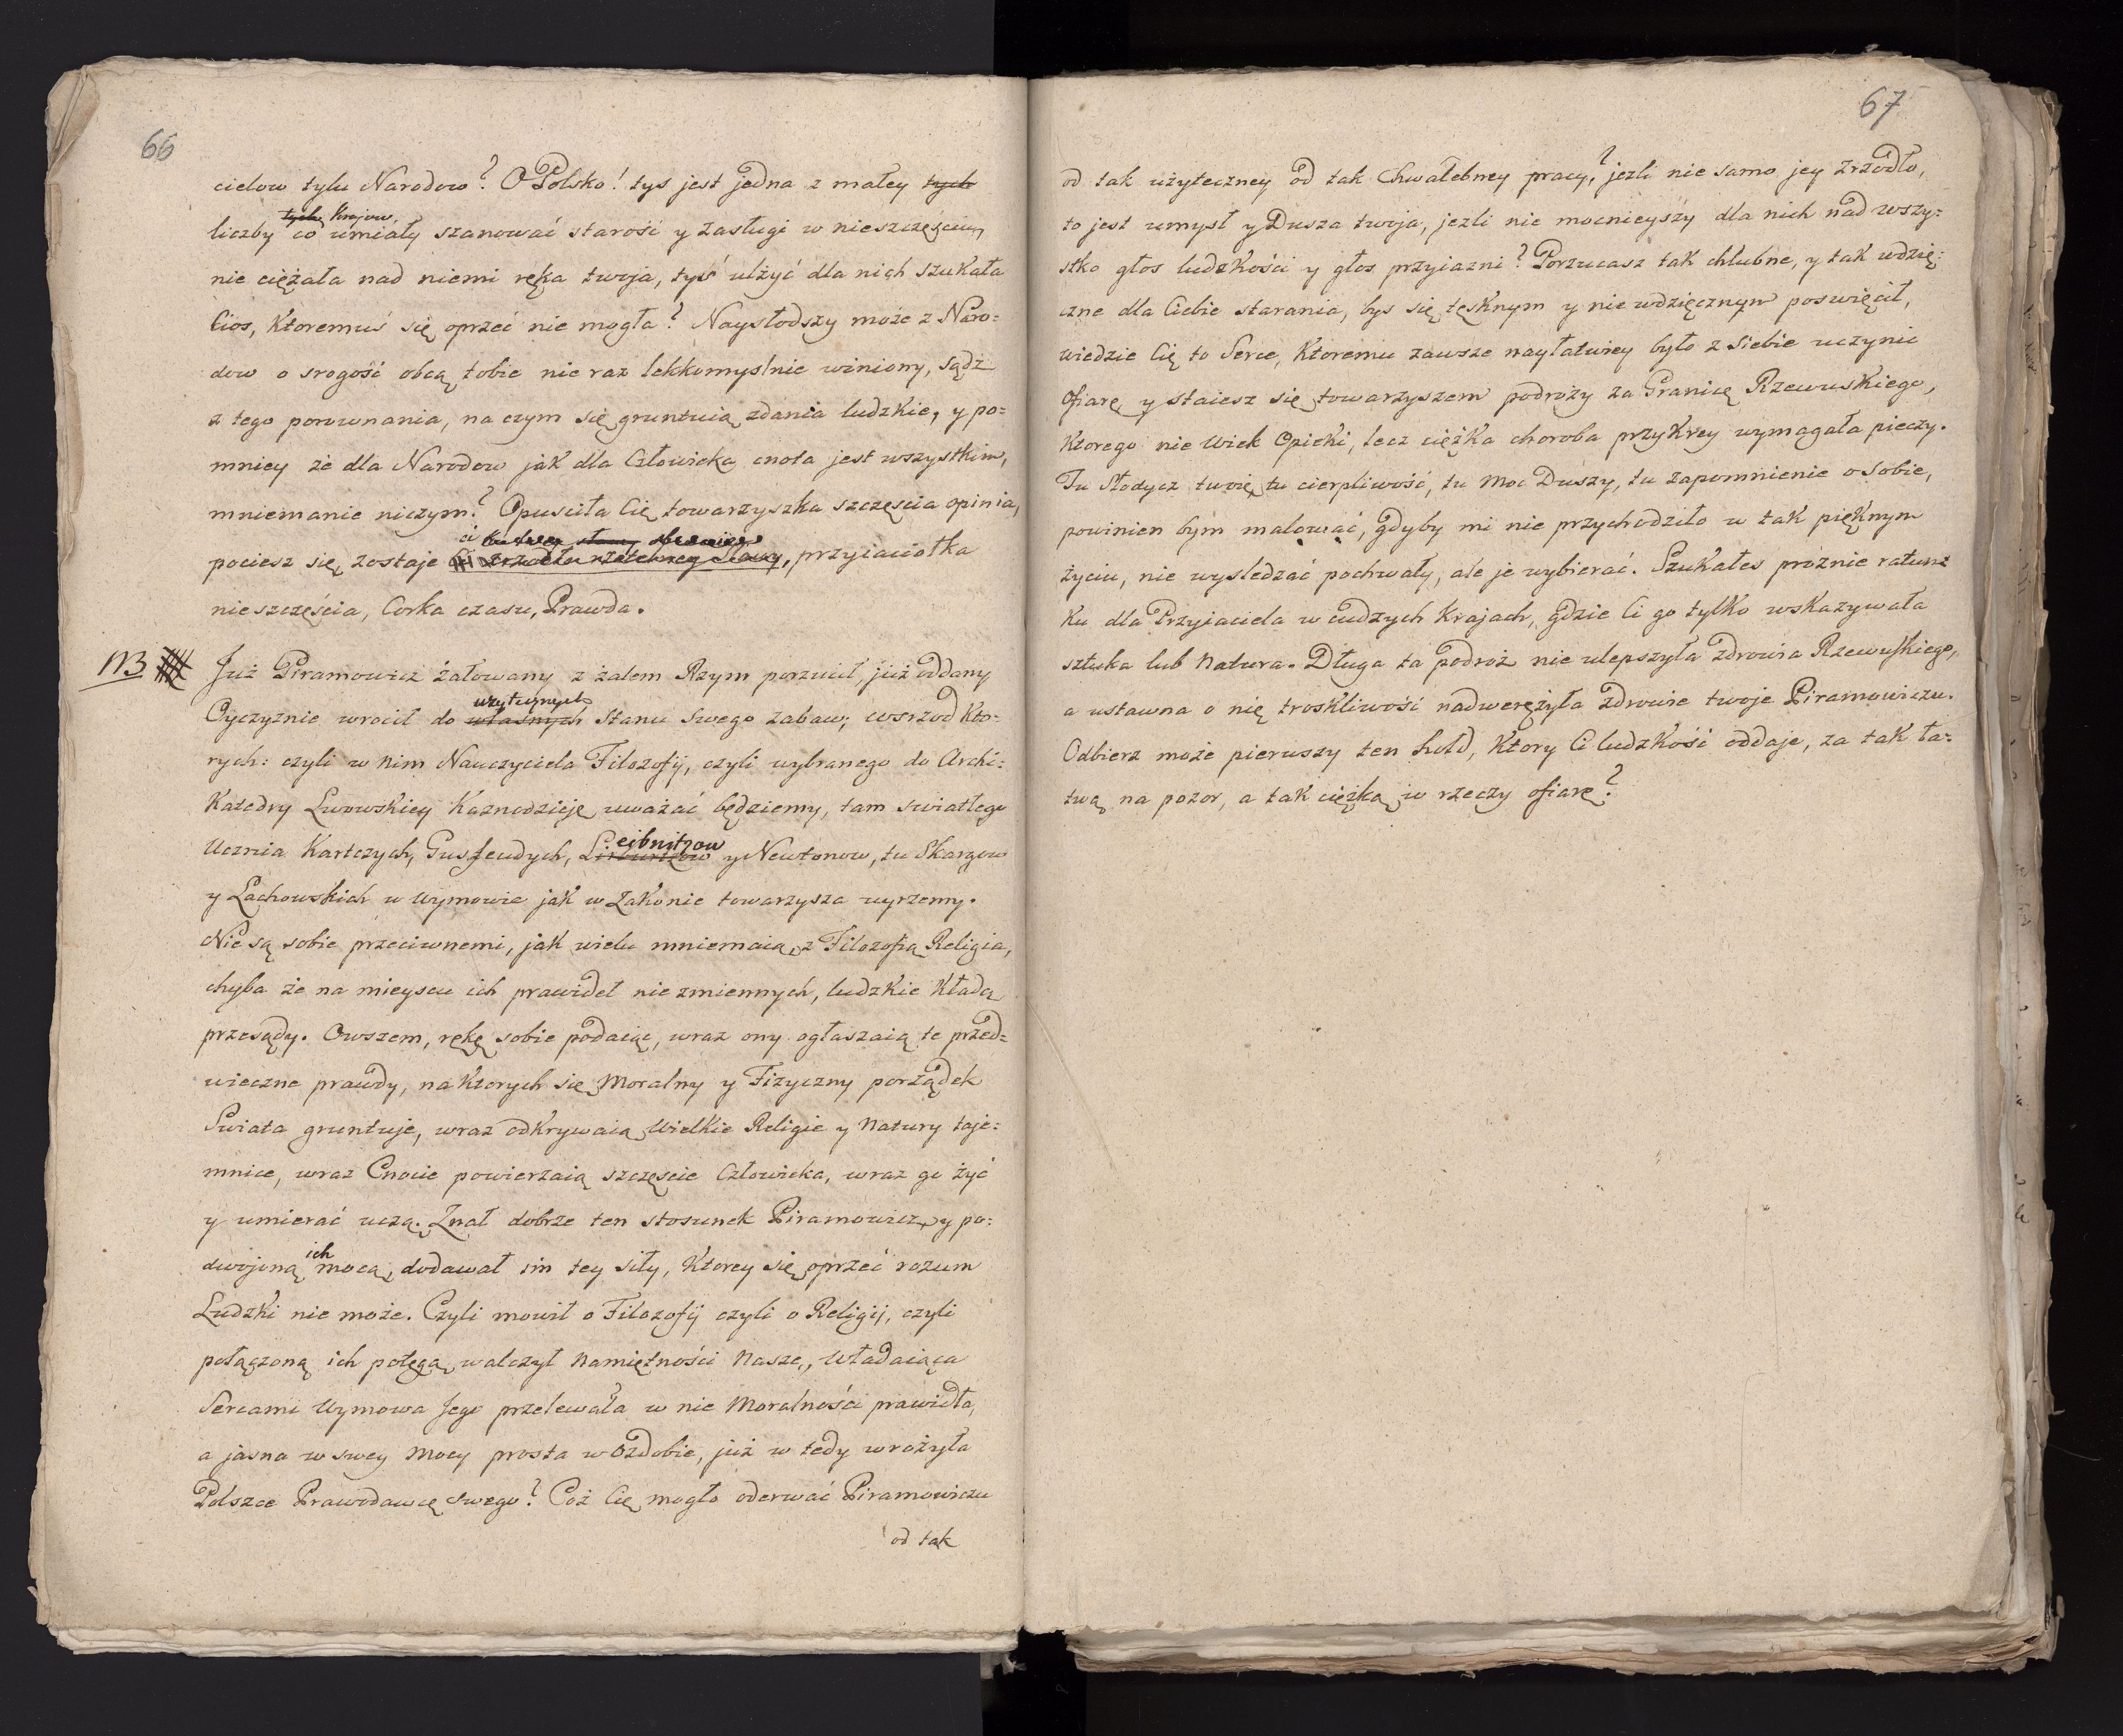 66
cielow tylu Narodow? O Polsko! tys jest jedna z małey tych
tych Krajow,
liczby co umiały szanować starość y zasługi w nieszczęściu,
nie ciężała nad niemi ręka twoja, tyś ulżyć dla nich szukała
Cios, Ktoremuś się oprzeć nie mogła? Naysłodszy może z Naro=
dow o srogość obcą tobie nie raz lekkomyslnie winiony, sądź
z tego porownania, na czym się gruntuią zdania ludzkie, y po=
mniey że dla Narodow jak dla Człowieka cnota jest wszystkim,
mniemanie niczym? Opusciła Cię towarzyszka szczęscia opinia,
ci
pociesz się, zostaje Ci zrzodła rzetelney Sławy, przyiaciołka
nieszczęścia, Corka czasu, Prawda.
NB Już Piramowicz żałowany z żalem Rzym porzucił, już oddany
użytecznych
Oyczyznie wrocił do własnych stanu swego zabaw; wsrzod Kto=
rych: czyli w nim Nauczyciela Filozofij, czyli wybranego do Archi=
Katedry Lwowskiey Kaznodzieję uważać będziemy, tam swiatłego
eibnitzow
Ucznia Kartezych, Gussendych, L y Newtonow, tu Skargow
y Lachowskich w Wymowie jak w Zakonie towarzysza uyrzemy.
Nie są sobie przeciwnemi, jak wielu mniemaią, z Filozofią Religia,
chyba że na mieyscu ich prawideł nie zmiennych, ludzkie Kładą
przesądy. Owszem, rękę sobie podaiąc, wraz ony ogłaszaią te przed=
wieczne prawdy, na Ktorych się Moralny y Fizyczny porządek
Swiata gruntuje, wraz odKrywaią Wielkie Religie y Natury taje=
mnice, wraz Cnocie powierzaią szczęscie Człowieka, wraz go żyć
y umierać uczą. Znał dobrze ten stosunek Piramowicz, y po=
ich
dwojoną mocą, dodawał im tey siły, Ktorey się oprzeć rozum
Ludzki nie może. Czyli mowił o Filozofij czyli o Religij, czyli
połączoną ich potęgą walczył Namiętności Nasze, Władaiąca
Sercami Wymowa Jego przelewała w nie Moralności prawidła,
a jasna w swey Mocy prosta w Ozdobie, już w tedy wrożyła
Polszce Prawodawcę swego? Coż Cię mogło oderwać Piramowiczu
od tak
67
od tak użyteczney od tak Chwalebney pracy? jezli nie samo jey zrzodło,
to jest umysł y Dusza twoja, jezli nie mocnieyszy dla nich nad wszy=
stko głos ludzkości y głos przyiazni? Porzucasz tak chlubne, y tak wdzię=
czne dla Ciebie starania, bys się tęsknym y nie wdzięcznym poswięcił,
wiedzie Cię to Serce, Ktoremu zawsze nayłatwiey było z Siebie uczynic
Ofiarę y staiesz się towarzyszem podroży za Granicę Rzewuskiego,
Ktorego nie Wiek Opieki, lecz ciężka choroba przyKrey wymagała pieczy.
Tu Słodycz twoię, tu cierpliwość, tu Moc Duszy, tu zapomnienie o Sobie,
powinien bym malować, gdyby mi nie przychodziło w tak pięknym
życiu, nie wysledzać pochwały, ale je wybierać. Szukałes proznie ratun=
Ku dla Przyiaciela w cudzych Krajach, gdzie Ci go tylko wskazywała
sztuka lub Natura. Długa ta podroż nie ulepszyła zdrowia Rzewuskiego,
a ustawna o nię troskliwość nadweręzyła zdrowie twoje Piramowiczu.
Odbierz może pierwszy ten hołd, Ktory Ci ludzkość oddaje, za tak ła=
twą na pozor, a tak cięzką w rzeczy ofiarę?